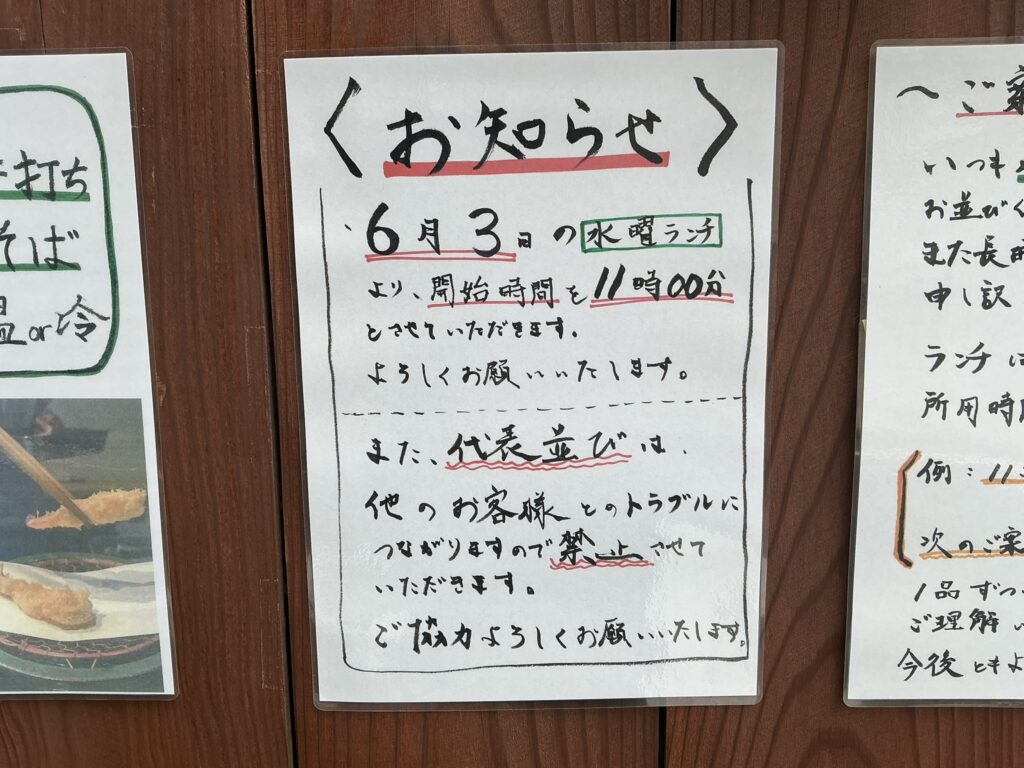 手打ち
そば
温or冷
〈お知らせ〉
6月3日の水曜ランチ
より、開始時間を11時00分
とさせていただきます。
よろしくお願いいたします。
また、代表並びは、
他のお客様とのトラブルに
つながりますので禁止させて
いただきます。
ご協力よろしくお願いいたします。
〜ご案
いつも
お並びく
また長時
申し訳
ランチに
所用時間
例：11
次のご案
1品ずつ
ご理解い
今後ともよ